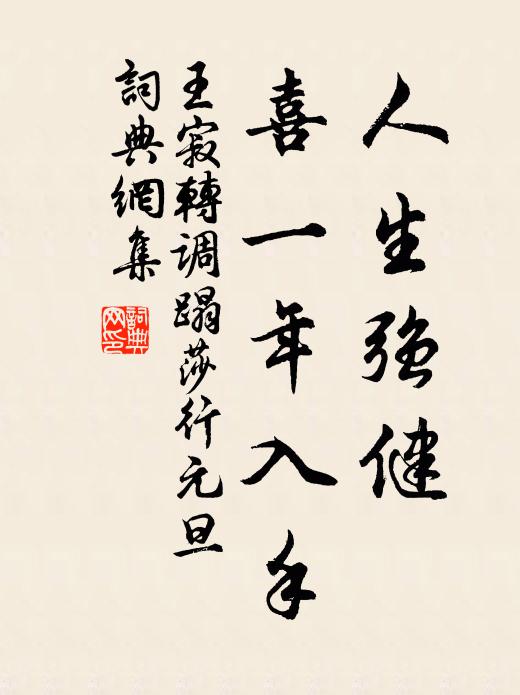 人生強健
喜一年入手
王寂轉調蹋莎行元旦
詞典網集
詞典
网印